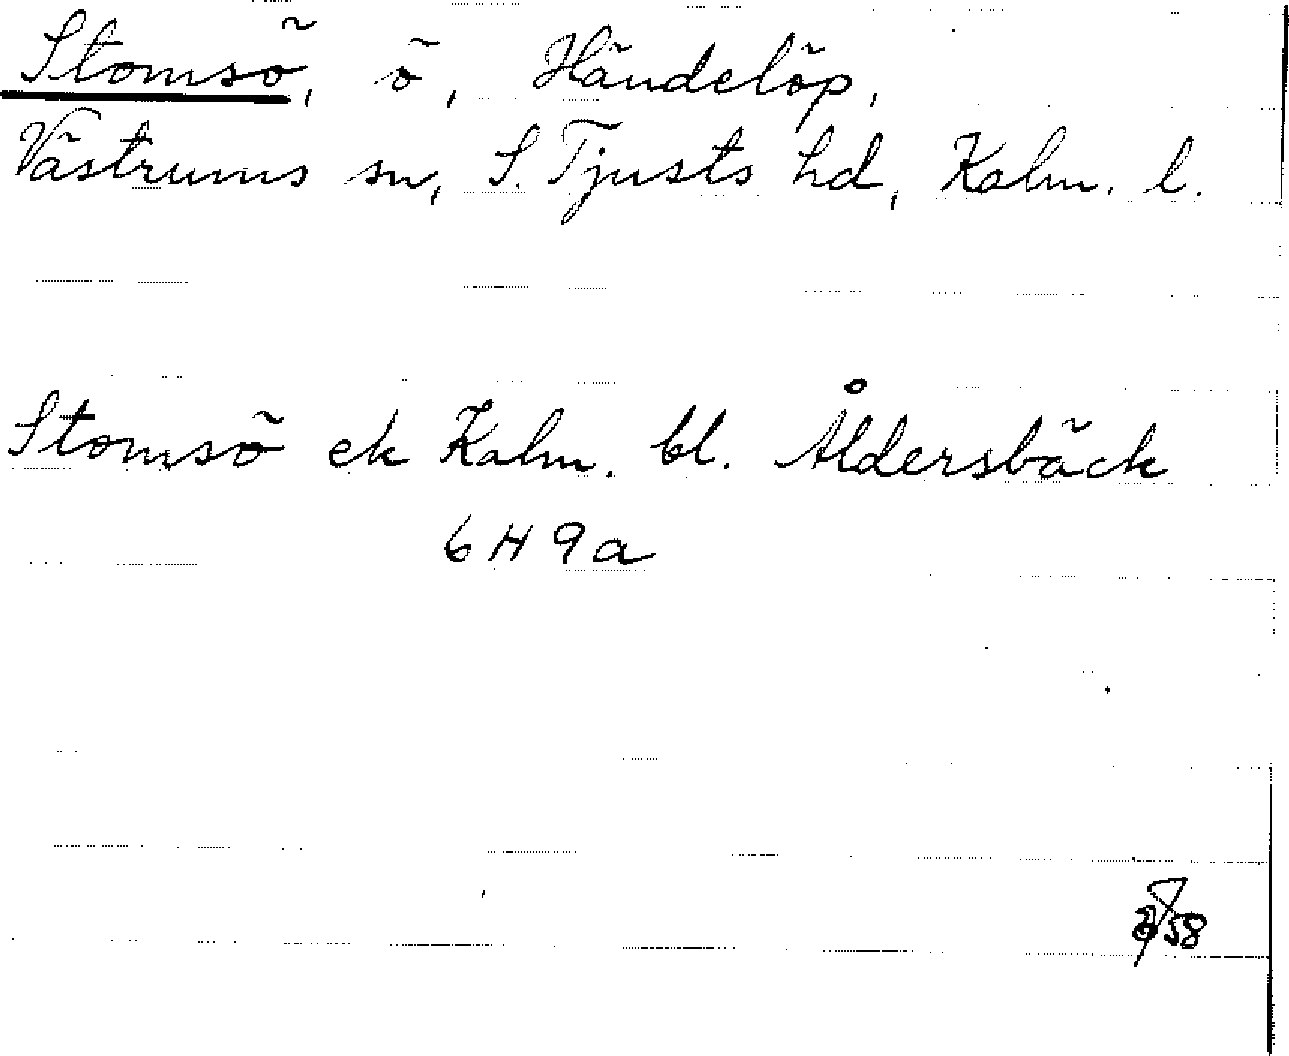 Stomsö, ö, Händelöp,
Västrums sn, S. Tjusts hd, Kalm. l.
Stomsö ek Kalm. bl. Åldersbäck
6H9a